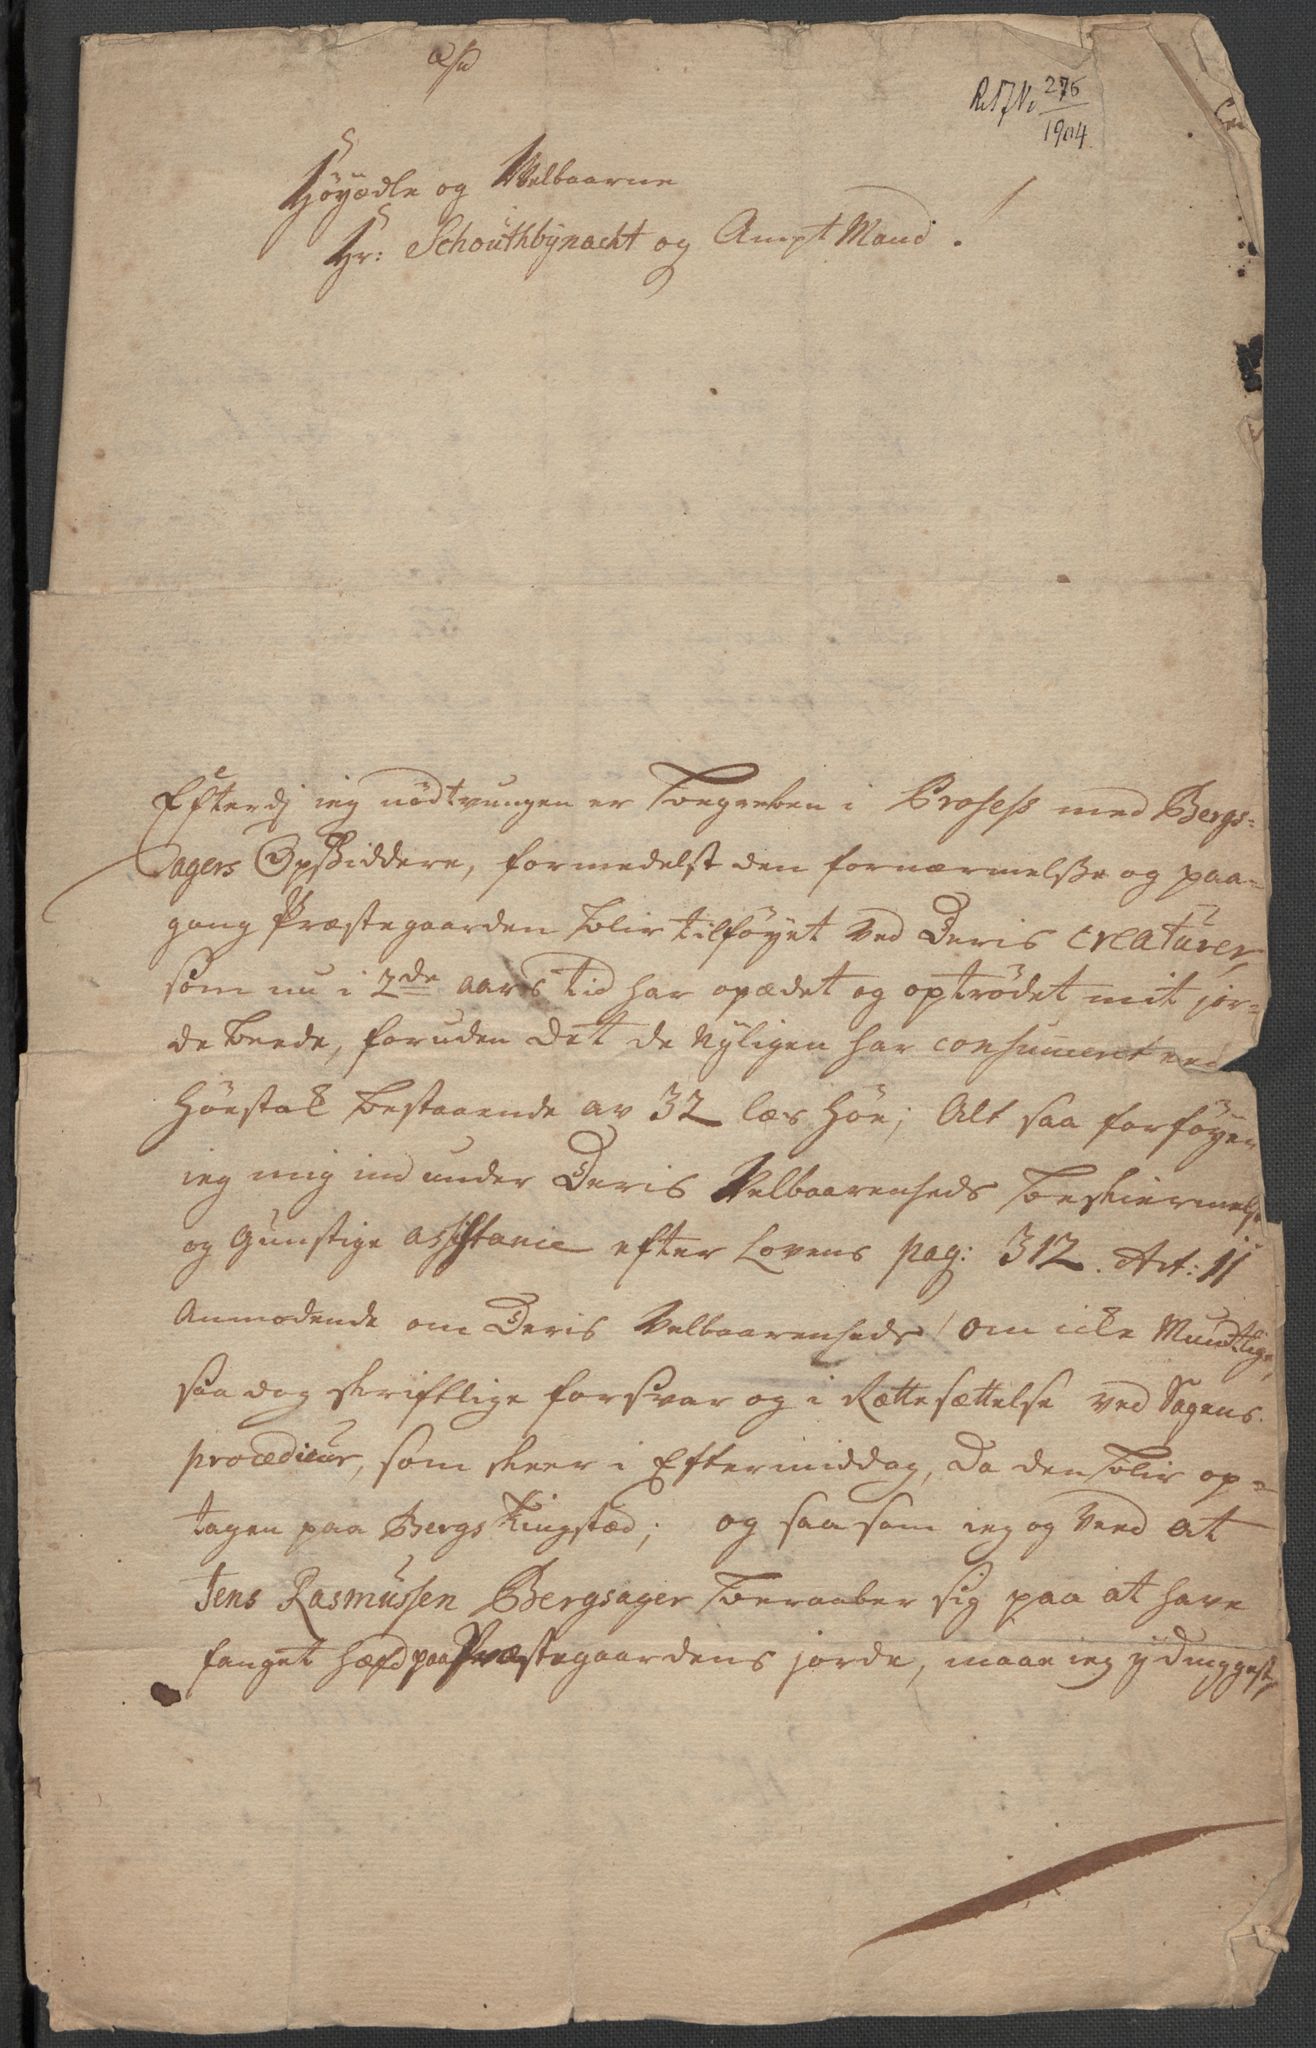 276
1904
Höyædle og Velbaarne
Hr: Schouthbynacht og Ampt Mand.
Efterdj ieg nödtvungen er begreben i Prosess med Bergs-
agers Opsiddere, formedelst den fornærmelsse og paa-
gang Præstegaarden blir tilföyet ved Deris creaturer,
som nu i 2de aars tid har opædet og optrödet mit jor-
de beede, foruden det de nyligen har consumeret
Höestak bestaaende av 32 læs Höe; Alt saa forföyer
ieg mig ind under Deris Velbaarenheds beskiermelse
og Gunstige assistance efter Lovens pag: 312. Art: 11
Anmodende om Deris Velbaarenheds / om icke Mundtlige,
saa dog skriftlige forsvar og i Rættesættelse ved Sagens
procedieur, som skeer i Eftermiddag, da den blir op-
tagen paa Bergs Tingstæd; og saasom ieg og veed at
Jens Rasmussen Bergsager beraaber sig paa at have
fanget Hæfd paa Præstegaardens jorde, maae ieg ydmygst